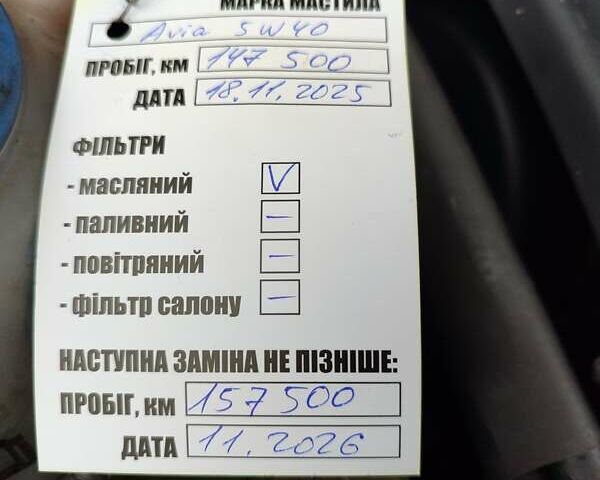 МАРКА МАСТИЛА
Avia 5W40
ПРОБІГ, КМ 147 500
ДАТА 18.11.2025
ФІЛЬТРИ
- масляний V
- паливний –
- повітряний –
- фільтр салону –
НАСТУПНА ЗАМІНА НЕ ПІЗНІШЕ:
ПРОБІГ, КМ 157 500
ДАТА 11.2026